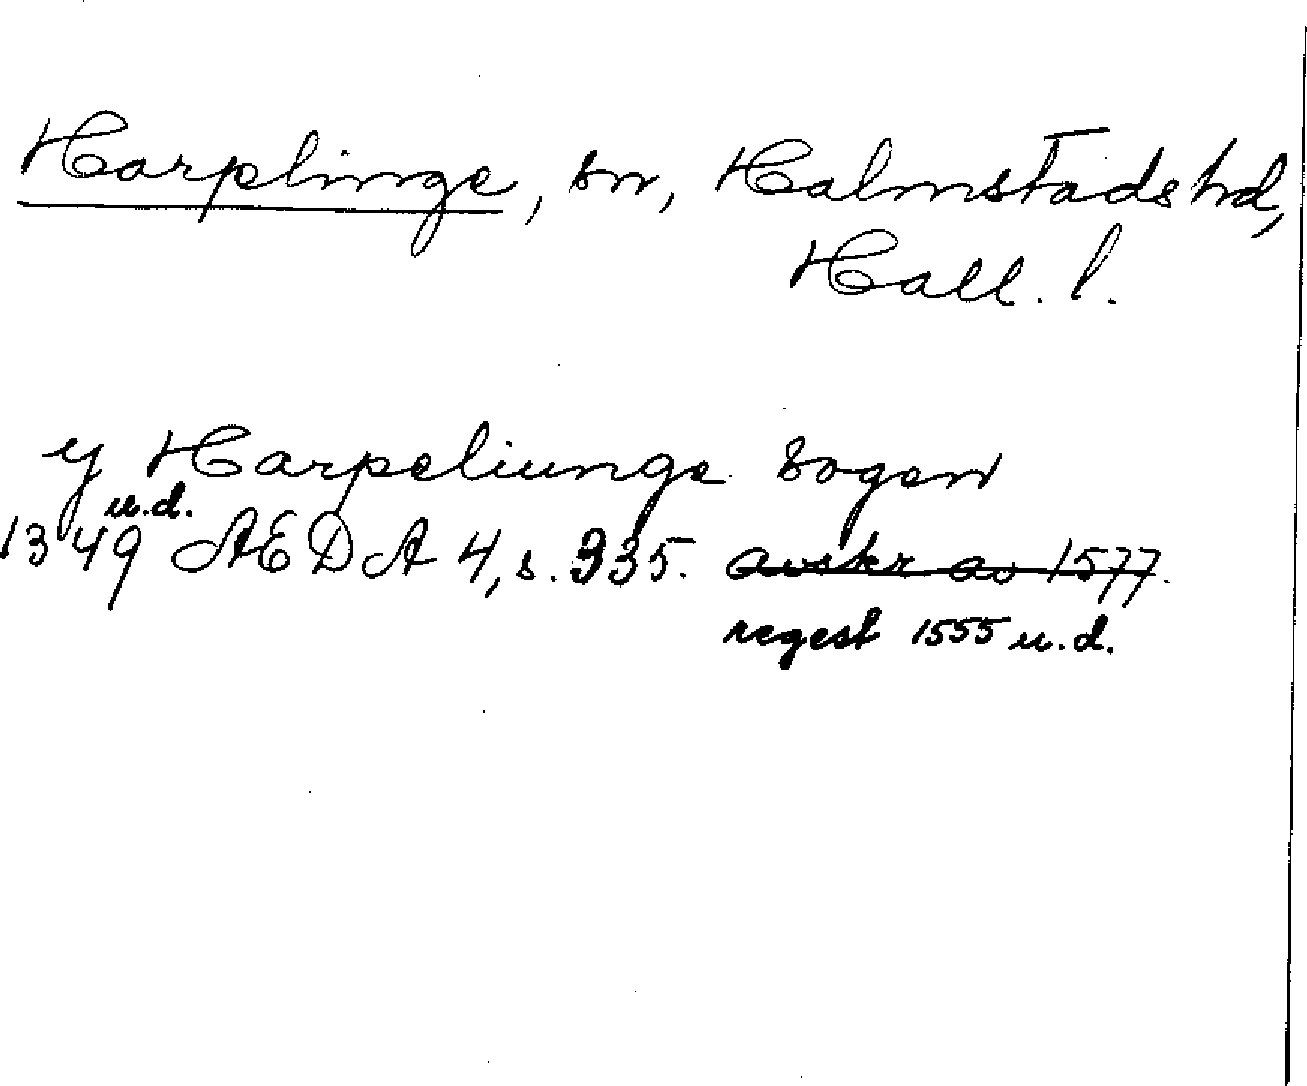 Harplinge, sn, Halmstads hd,
Hall. l.
y Harpeliunge sogen
u.d.
1349 AEDA 4, s. 335. avskr av 1577.
regest 1555 u.d.